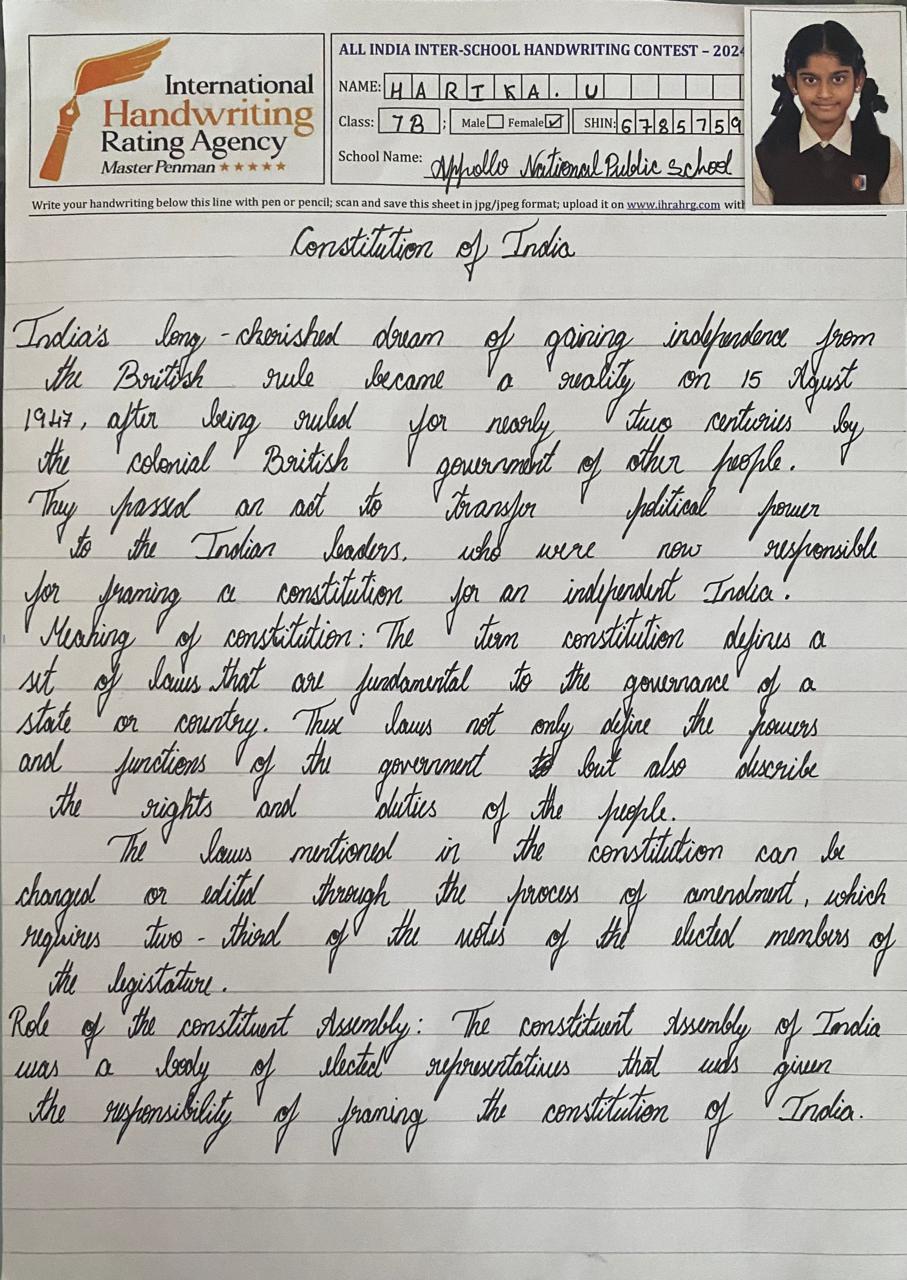 International
Handwriting
Rating Agency
Master Penman ★★★★★
ALL INDIA INTER-SCHOOL HANDWRITING CONTEST – 2024
NAME: HARIKA. U
Class: 7B ; Male Female ✓ SHIN: 6785759
School Name: Appollo National Public School
Write your handwriting below this line with pen or pencil; scan and save this sheet in jpg/jpeg format; upload it on www.ihrahrg.com with
Constitution of India
India's long - cherished dream of gaining independence from
the British rule became a reality on 15 Agust
1947, after being ruled for nearly two centuries by
the colonial British government of other people.
They passed an act to transfer political power
to the Indian leaders, who were now responsible
for framing a constitution for an independent India.
Meaning of constitution: The term constitution defines a
set of laws that are fundamental to the governance of a
state or country. These laws not only define the powers
and functions of the government but also describe
the rights and duties of the people.
The laws mentioned in the constitution can be
changed or edited through the process of amendment, which
requires two - third of the votes of the elected members of
the legistature.
Role of the constituent Assembly: The constituent Assembly of India
was a body of elected representatives that was given
the responsibility of framing the constitution of India.